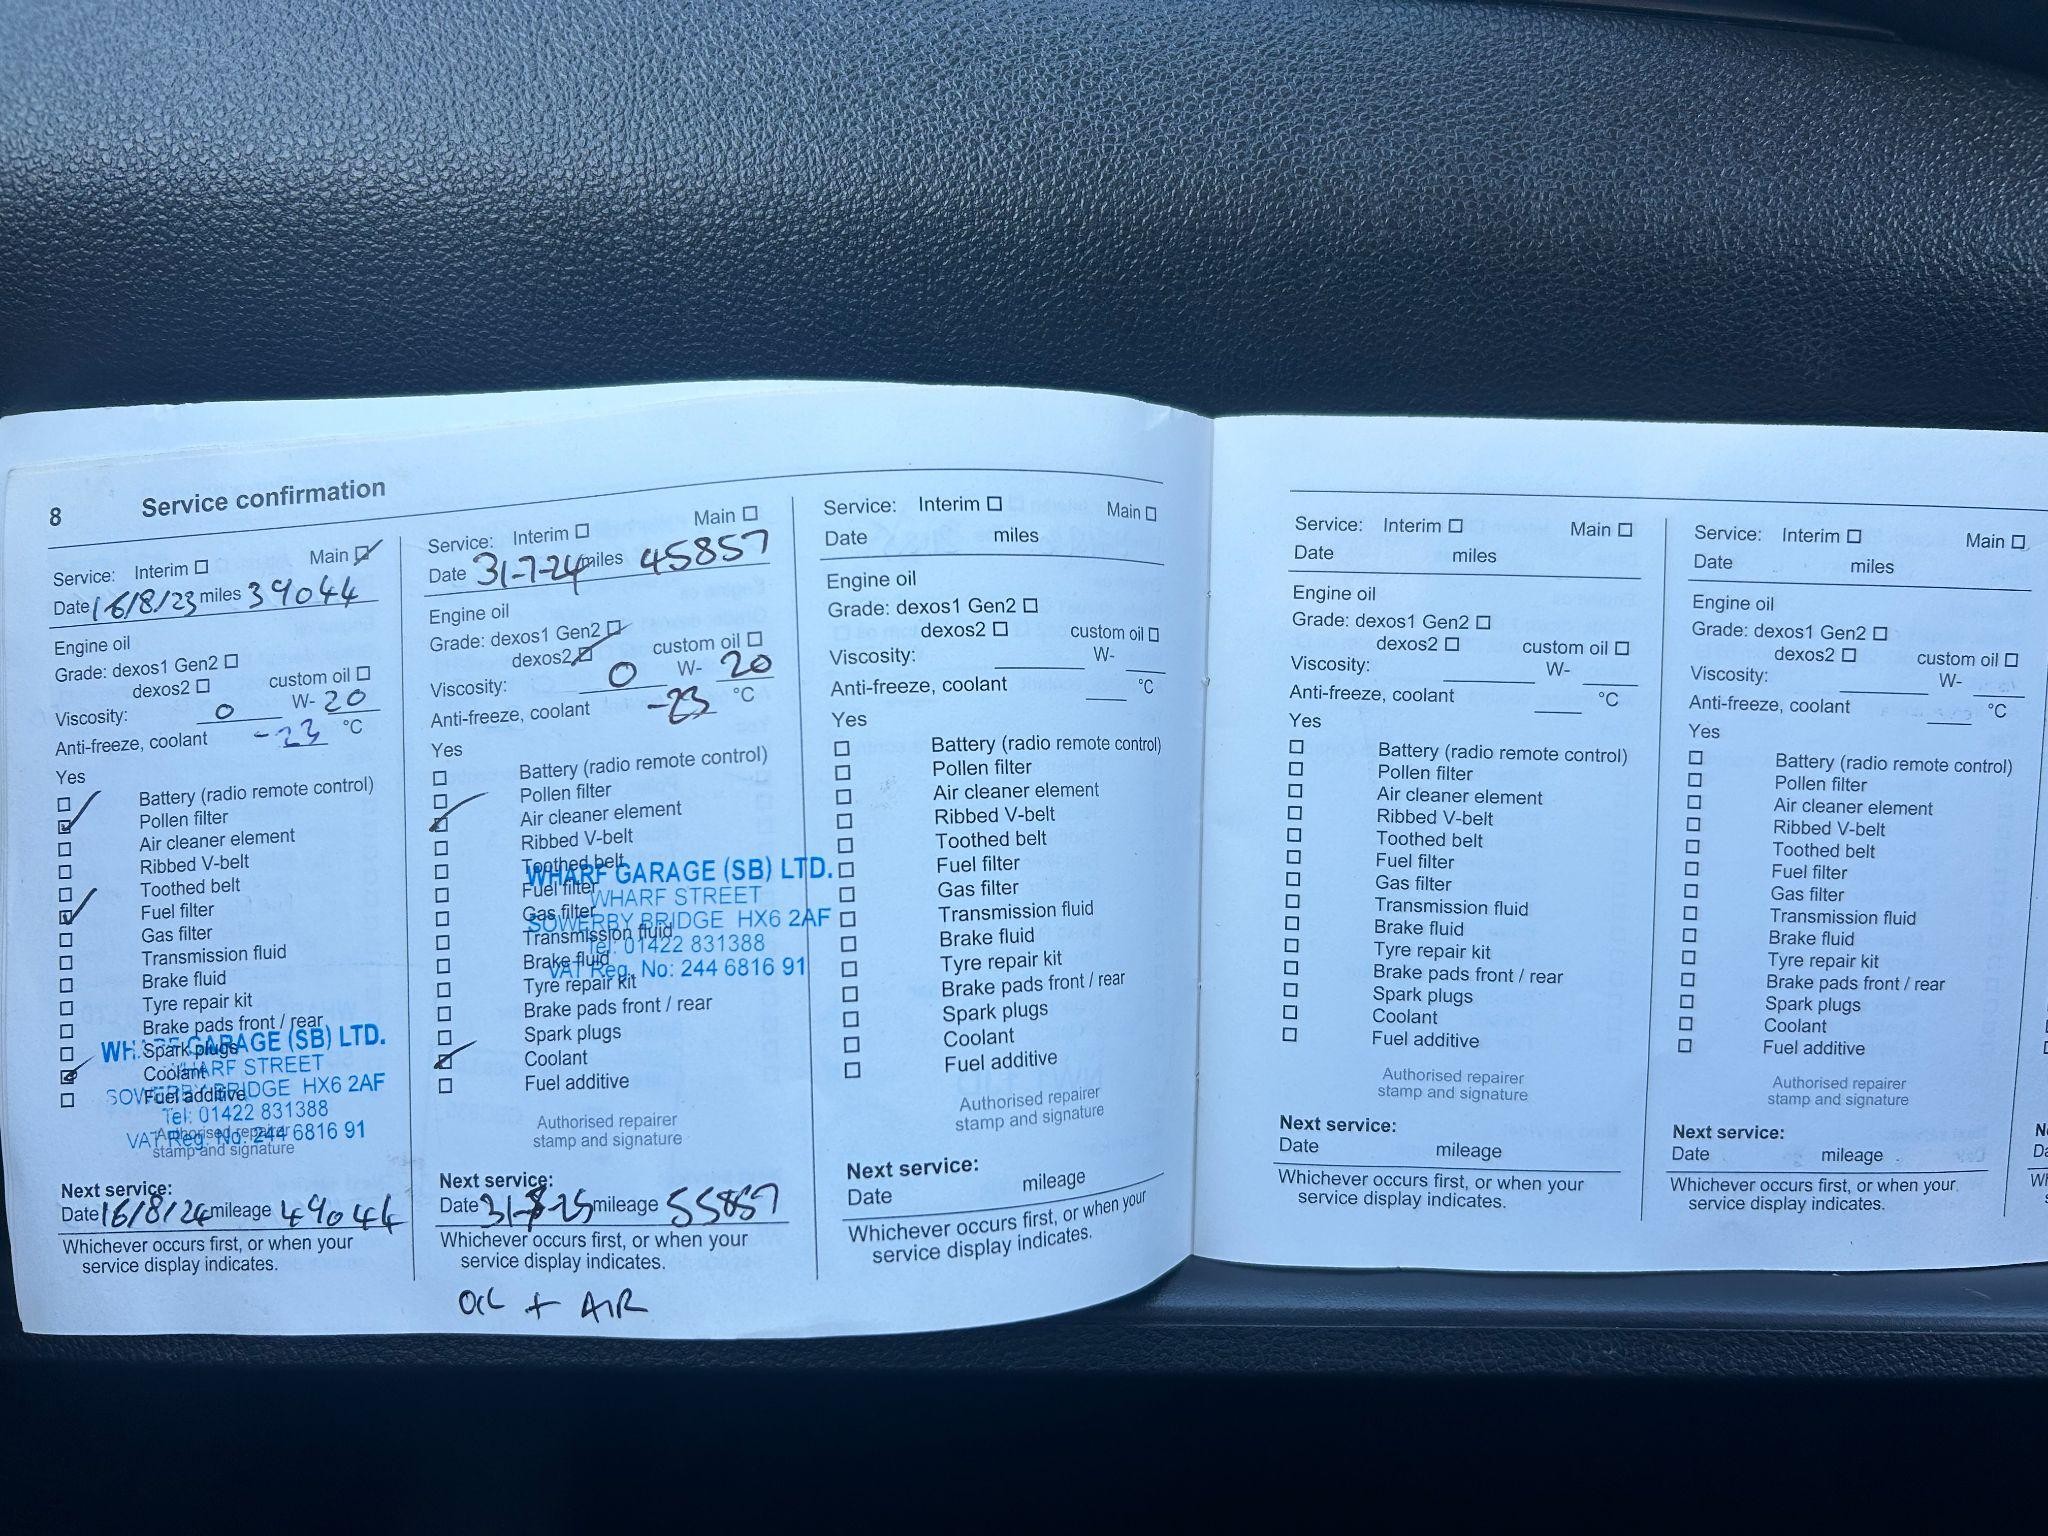 8 Service confirmation
Service: Interim ☐ Main ☑
Date 16/8/23 miles 39044
Engine oil
Grade: dexos1 Gen2 ☐
dexos2 ☐ custom oil ☐
Viscosity: 0 W- 20
Anti-freeze, coolant -23 °C
Yes
☐ Battery (radio remote control)
☑ Pollen filter
☐ Air cleaner element
☐ Ribbed V-belt
☐ Toothed belt
☑ Fuel filter
☐ Gas filter
☐ Transmission fluid
☐ Brake fluid
☐ Tyre repair kit
☐ Brake pads front / rear
☐ Spark plugs
☑ Coolant
☐ Fuel additive
WHARF GARAGE (SB) LTD.
WHARF STREET
SOWERBY BRIDGE HX6 2AF
Tel: 01422 831388
VAT Reg. No: 244 6816 91
Authorised repairer
stamp and signature
Next service:
Date 16/8/24 mileage 49044
Whichever occurs first, or when your
service display indicates.
Service: Interim ☐ Main ☐
Date 31-7-24 miles 45857
Engine oil
Grade: dexos1 Gen2 ☑
dexos2 ☑ custom oil ☐
Viscosity: 0 W- 20
Anti-freeze, coolant -23 °C
Yes
☐ Battery (radio remote control)
☐ Pollen filter
☑ Air cleaner element
☐ Ribbed V-belt
☐ Toothed belt
☐ Fuel filter
☐ Gas filter
☐ Transmission fluid
☐ Brake fluid
☐ Tyre repair kit
☐ Brake pads front / rear
☐ Spark plugs
☑ Coolant
☐ Fuel additive
WHARF GARAGE (SB) LTD.
WHARF STREET
SOWERBY BRIDGE HX6 2AF
Tel: 01422 831388
VAT Reg. No: 244 6816 91
Authorised repairer
stamp and signature
Next service:
Date mileage 55857
Whichever occurs first, or when your
service display indicates.
OIL + AIR
Service: Interim ☐ Main ☐
Date miles
Engine oil
Grade: dexos1 Gen2 ☐
dexos2 ☐ custom oil ☐
Viscosity: W-
Anti-freeze, coolant °C
Yes
☐ Battery (radio remote control)
☐ Pollen filter
☐ Air cleaner element
☐ Ribbed V-belt
☐ Toothed belt
☐ Fuel filter
☐ Gas filter
☐ Transmission fluid
☐ Brake fluid
☐ Tyre repair kit
☐ Brake pads front / rear
☐ Spark plugs
☐ Coolant
☐ Fuel additive
Authorised repairer
stamp and signature
Next service:
Date mileage
Whichever occurs first, or when your
service display indicates.
Service: Interim ☐ Main ☐
Date miles
Engine oil
Grade: dexos1 Gen2 ☐
dexos2 ☐ custom oil ☐
Viscosity: W-
Anti-freeze, coolant °C
Yes
☐ Battery (radio remote control)
☐ Pollen filter
☐ Air cleaner element
☐ Ribbed V-belt
☐ Toothed belt
☐ Fuel filter
☐ Gas filter
☐ Transmission fluid
☐ Brake fluid
☐ Tyre repair kit
☐ Brake pads front / rear
☐ Spark plugs
☐ Coolant
☐ Fuel additive
Authorised repairer
stamp and signature
Next service:
Date mileage
Whichever occurs first, or when your
service display indicates.
Service: Interim ☐ Main ☐
Date miles
Engine oil
Grade: dexos1 Gen2 ☐
dexos2 ☐ custom oil ☐
Viscosity: W-
Anti-freeze, coolant °C
Yes
☐ Battery (radio remote control)
☐ Pollen filter
☐ Air cleaner element
☐ Ribbed V-belt
☐ Toothed belt
☐ Fuel filter
☐ Gas filter
☐ Transmission fluid
☐ Brake fluid
☐ Tyre repair kit
☐ Brake pads front / rear
☐ Spark plugs
☐ Coolant
☐ Fuel additive
Authorised repairer
stamp and signature
Next service:
Date mileage
Whichever occurs first, or when your
service display indicates.